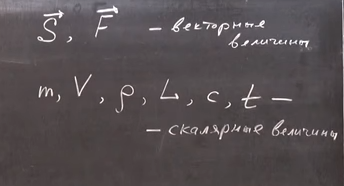 S⃗, F⃗ – векторные
величины
m, V, ρ, L, c, t –
– скалярные величины